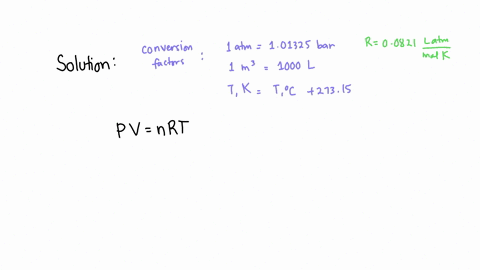 Solution: conversion factors : 1 atm = 1.01325 bar R = 0.0821 L atm / mol K
1 m³ = 1000 L
T, K = T, °C + 273.15
PV = nRT